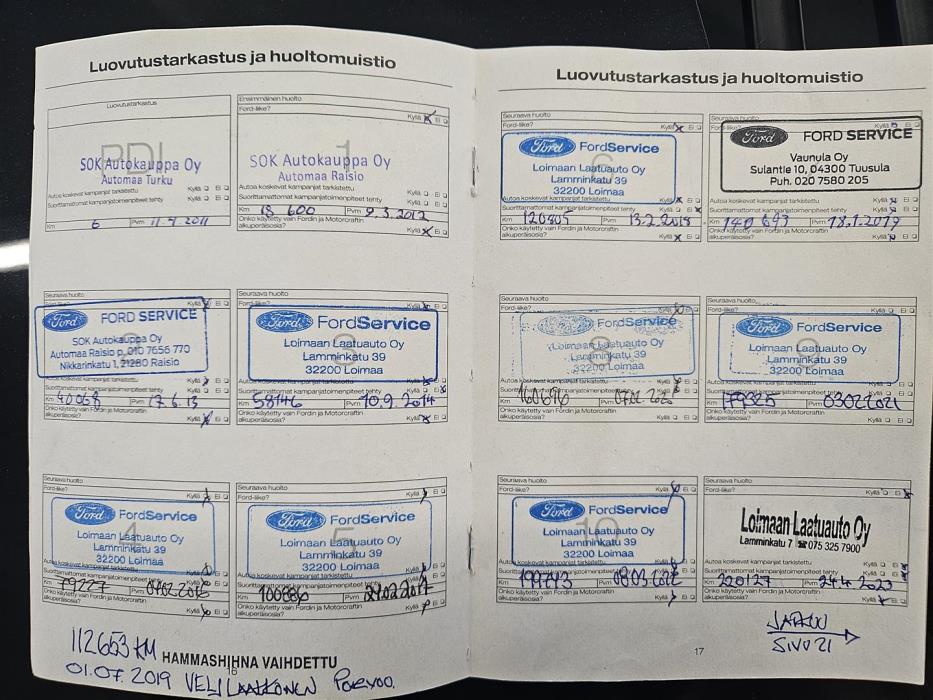 Luovutustarkastus ja huoltomuistio
Luovutustarkastus
PDI
SOK Autokauppa Oy
Automaa Turku
Autoa koskevat kampanjat tarkistettu Kyllä Ei
Suorittamattomat kampanjatoimenpiteet tehty Kyllä Ei
Km 6 Pvm 11.7 2011
Ensimmäinen huolto
Ford-liike? Kyllä x Ei
1
SOK Autokauppa Oy
Automaa Raisio
Autoa koskevat kampanjat tarkistettu Kyllä Ei
Suorittamattomat kampanjatoimenpiteet tehty Kyllä Ei
Km 18 600 Pvm 9.3.2012
Onko käytetty vain Fordin ja Motorcraftin
alkuperäsosia? Kyllä x Ei
Seuraava huolto
Ford-liike? Kyllä Ei
Ford FORD SERVICE
SOK Autokauppa Oy
Automaa Raisio p. 010 7656 770
Nikkarinkatu 1, 21280 Raisio
Autoa koskevat kampanjat tarkistettu Kyllä Ei
Suorittamattomat kampanjatoimenpiteet tehty Kyllä Ei
Km 40068 Pvm 17.6.13
Onko käytetty vain Fordin ja Motorcraftin
alkuperäsosia? Kyllä x Ei
Seuraava huolto
Ford-liike? Kyllä Ei
3
Ford FordService
Loimaan Laatuauto Oy
Lamminkatu 39
32200 Loimaa
Autoa koskevat kampanjat tarkistettu Kyllä Ei
Suorittamattomat kampanjatoimenpiteet tehty Kyllä Ei
Km 58146 Pvm 10.9.2014
Onko käytetty vain Fordin ja Motorcraftin
alkuperäsosia? Kyllä x Ei
Seuraava huolto
Ford-liike? Kyllä Ei
4
Ford FordService
Loimaan Laatuauto Oy
Lamminkatu 39
32200 Loimaa
Suorittamattomat kampanjatoimenpiteet tehty Kyllä Ei
Km Pvm
Onko käytetty vain Fordin ja Motorcraftin
alkuperäsosia? Kyllä Ei
Seuraava huolto
Ford-liike? Kyllä Ei
5
Ford FordService
Loimaan Laatuauto Oy
Lamminkatu 39
32200 Loimaa
Autoa koskevat kampanjat tarkistettu Kyllä Ei
Suorittamattomat kampanjatoimenpiteet tehty Kyllä Ei
Km Pvm
Onko käytetty vain Fordin ja Motorcraftin
alkuperäsosia? Kyllä Ei
112653 KM HAMMASHIHNA VAIHDETTU
16
01.07.2019 VELJ LAAKKONEN PORVOO.
Luovutustarkastus ja huoltomuistio
Seuraava huolto
Ford-liike? Kyllä x Ei
6
Ford FordService
Loimaan Laatuauto Oy
Lamminkatu 39
32200 Loimaa
Autoa koskevat kampanjat tarkistettu Kyllä Ei
Suorittamattomat kampanjatoimenpiteet tehty Kyllä Ei
Km 120405 Pvm 13.2.2018
Onko käytetty vain Fordin ja Motorcraftin
alkuperäsosia? Kyllä x Ei
Seuraava huolto
Ford-liike? Kyllä Ei
Ford FORD SERVICE
Vaunula Oy
Sulantie 10, 04300 Tuusula
Puh. 020 7580 205
Autoa koskevat kampanjat tarkistettu Kyllä Ei
Suorittamattomat kampanjatoimenpiteet tehty Kyllä Ei
Km 140 693 Pvm 18.1.2019
Onko käytetty vain Fordin ja Motorcraftin
alkuperäsosia? Kyllä Ei
Seuraava huolto
Ford-liike? Kyllä Ei
8
Ford FordService
Loimaan Laatuauto Oy
Lamminkatu 39
32200 Loimaa
Autoa koskevat kampanjat tarkistettu Kyllä Ei
Suorittamattomat kampanjatoimenpiteet tehty Kyllä Ei
Km 160696 Pvm 07.02.2020
Onko käytetty vain Fordin ja Motorcraftin
alkuperäsosia? Kyllä Ei
Seuraava huolto
Ford-liike? Kyllä Ei
9
Ford FordService
Loimaan Laatuauto Oy
Lamminkatu 39
32200 Loimaa
Autoa koskevat kampanjat tarkistettu Kyllä Ei
Suorittamattomat kampanjatoimenpiteet tehty Kyllä Ei
Km 179325 Pvm 03.02.2021
Onko käytetty vain Fordin ja Motorcraftin
alkuperäsosia? Kyllä Ei
Seuraava huolto
Ford-liike? Kyllä Ei
10
Ford FordService
Loimaan Laatuauto Oy
Lamminkatu 39
32200 Loimaa
Autoa koskevat kampanjat tarkistettu Kyllä Ei
Suorittamattomat kampanjatoimenpiteet tehty Kyllä Ei
Km 199743 Pvm 08.03.2022
Onko käytetty vain Fordin ja Motorcraftin
alkuperäsosia? Kyllä Ei
Seuraava huolto
Ford-liike? Kyllä Ei x
Loimaan Laatuauto Oy
Lamminkatu 7 ☎075 325 7900
Autoa koskevat kampanjat tarkistettu Kyllä Ei
Suorittamattomat kampanjatoimenpiteet tehty Kyllä Ei
Km 220127 Pvm 24.4.2023
Onko käytetty vain Fordin ja Motorcraftin
alkuperäsosia? Kyllä Ei
17
JATKUU
SIVU 21